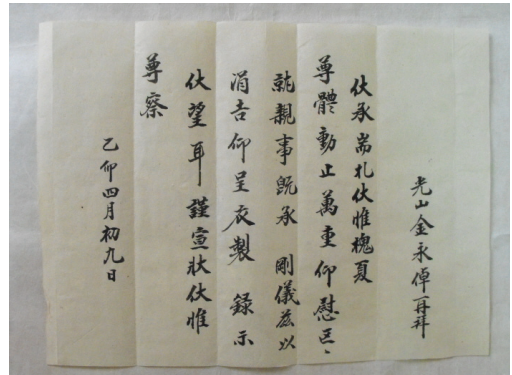 光山金永倬再拜
伏承耑札伏惟槐夏
尊體動止萬重仰慰区〻
就親事旣承 剛儀玆以
涓吉仰呈衣製 錄示
伏望耳謹宣狀伏惟
尊察
乙卯四月初九日